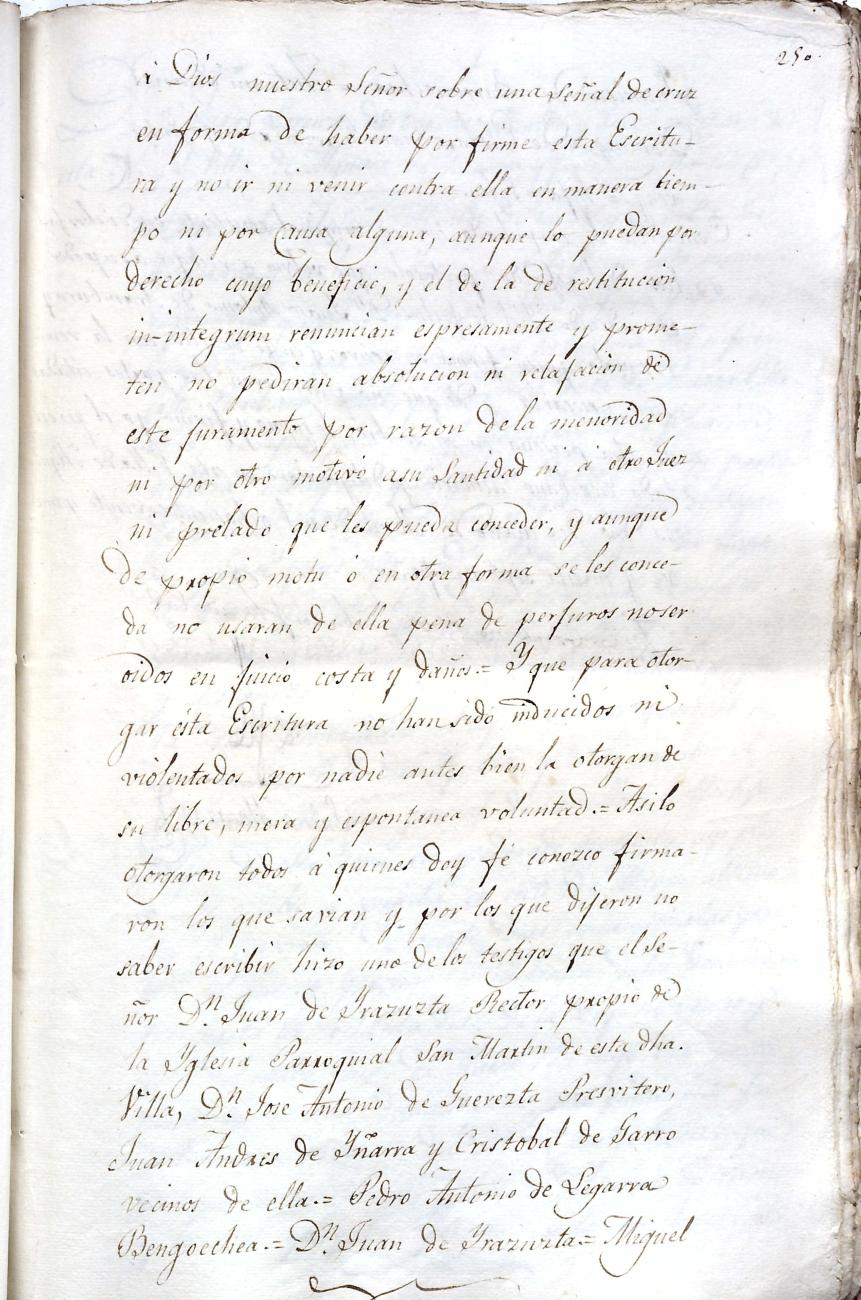 250.
á Dios nuestro Señor sobre una señal de cruz
en forma de haber por firme esta Escritu-
ra y no ir ni venir contra ella en manera tiem-
po ni por Causa alguna, aunque lo puedan por
derecho cuyo beneficio, y el de la de restitucion
in-integrum renuncian espresamente y prome-
ten no pediran absolucion ni relajacion de
este juramento por razon de la menoridad
ni por otro motivo a su Santidad ni á otro Juez
ni prelado que les pueda conceder, y aunque
de propio motu ó en otra forma se les conce-
da no usaran de ella pena de perjuros no ser
oidos en juicio costa y daños.= Y que para otor-
gar ésta Escritura no han sido inducidos ni
violentados por nadie antes bien la otorgan de
su libre, mera y espontanea voluntad.= Asi lo
otorgaron todos á quienes doy fé conozco firma-
ron los que savian y por los que dijeron no
saber escribir hizo uno de los testigos que el Se-
ñor Dn. Juan de Yrazuzta Rector propio de
la Yglesia Parroquial San Martin de esta dha.
Villa, Dn. Jose Antonio de Guerezta Presvitero,
Juan Andres de Yñarra y Cristobal de Garro
vecinos de ella.= Pedro Antonio de Legarra
Bengoechea.= Dn. Juan de Yrazuzta.= Miguel